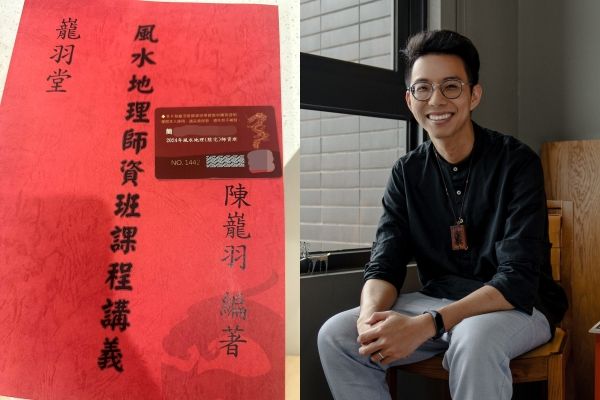 巃羽堂
風水地理師資班課程講義
陳巃羽 編著
2024年風水地理(陰宅)師資班
NO. 1442